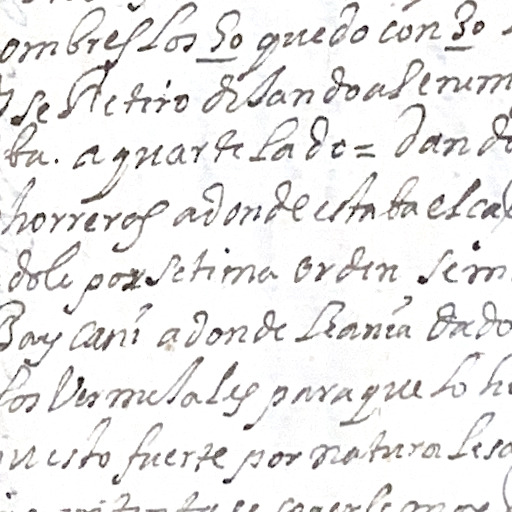 ombres los 50 quedo con 30
se Retiro dejando al enem
ba. aquartelado = Dando
horreros adonde estaba el ca
dole por setima orden se im
Baycani adonde le avia dado
los Vermelales para que lo h
puesto fuerte por naturalesa